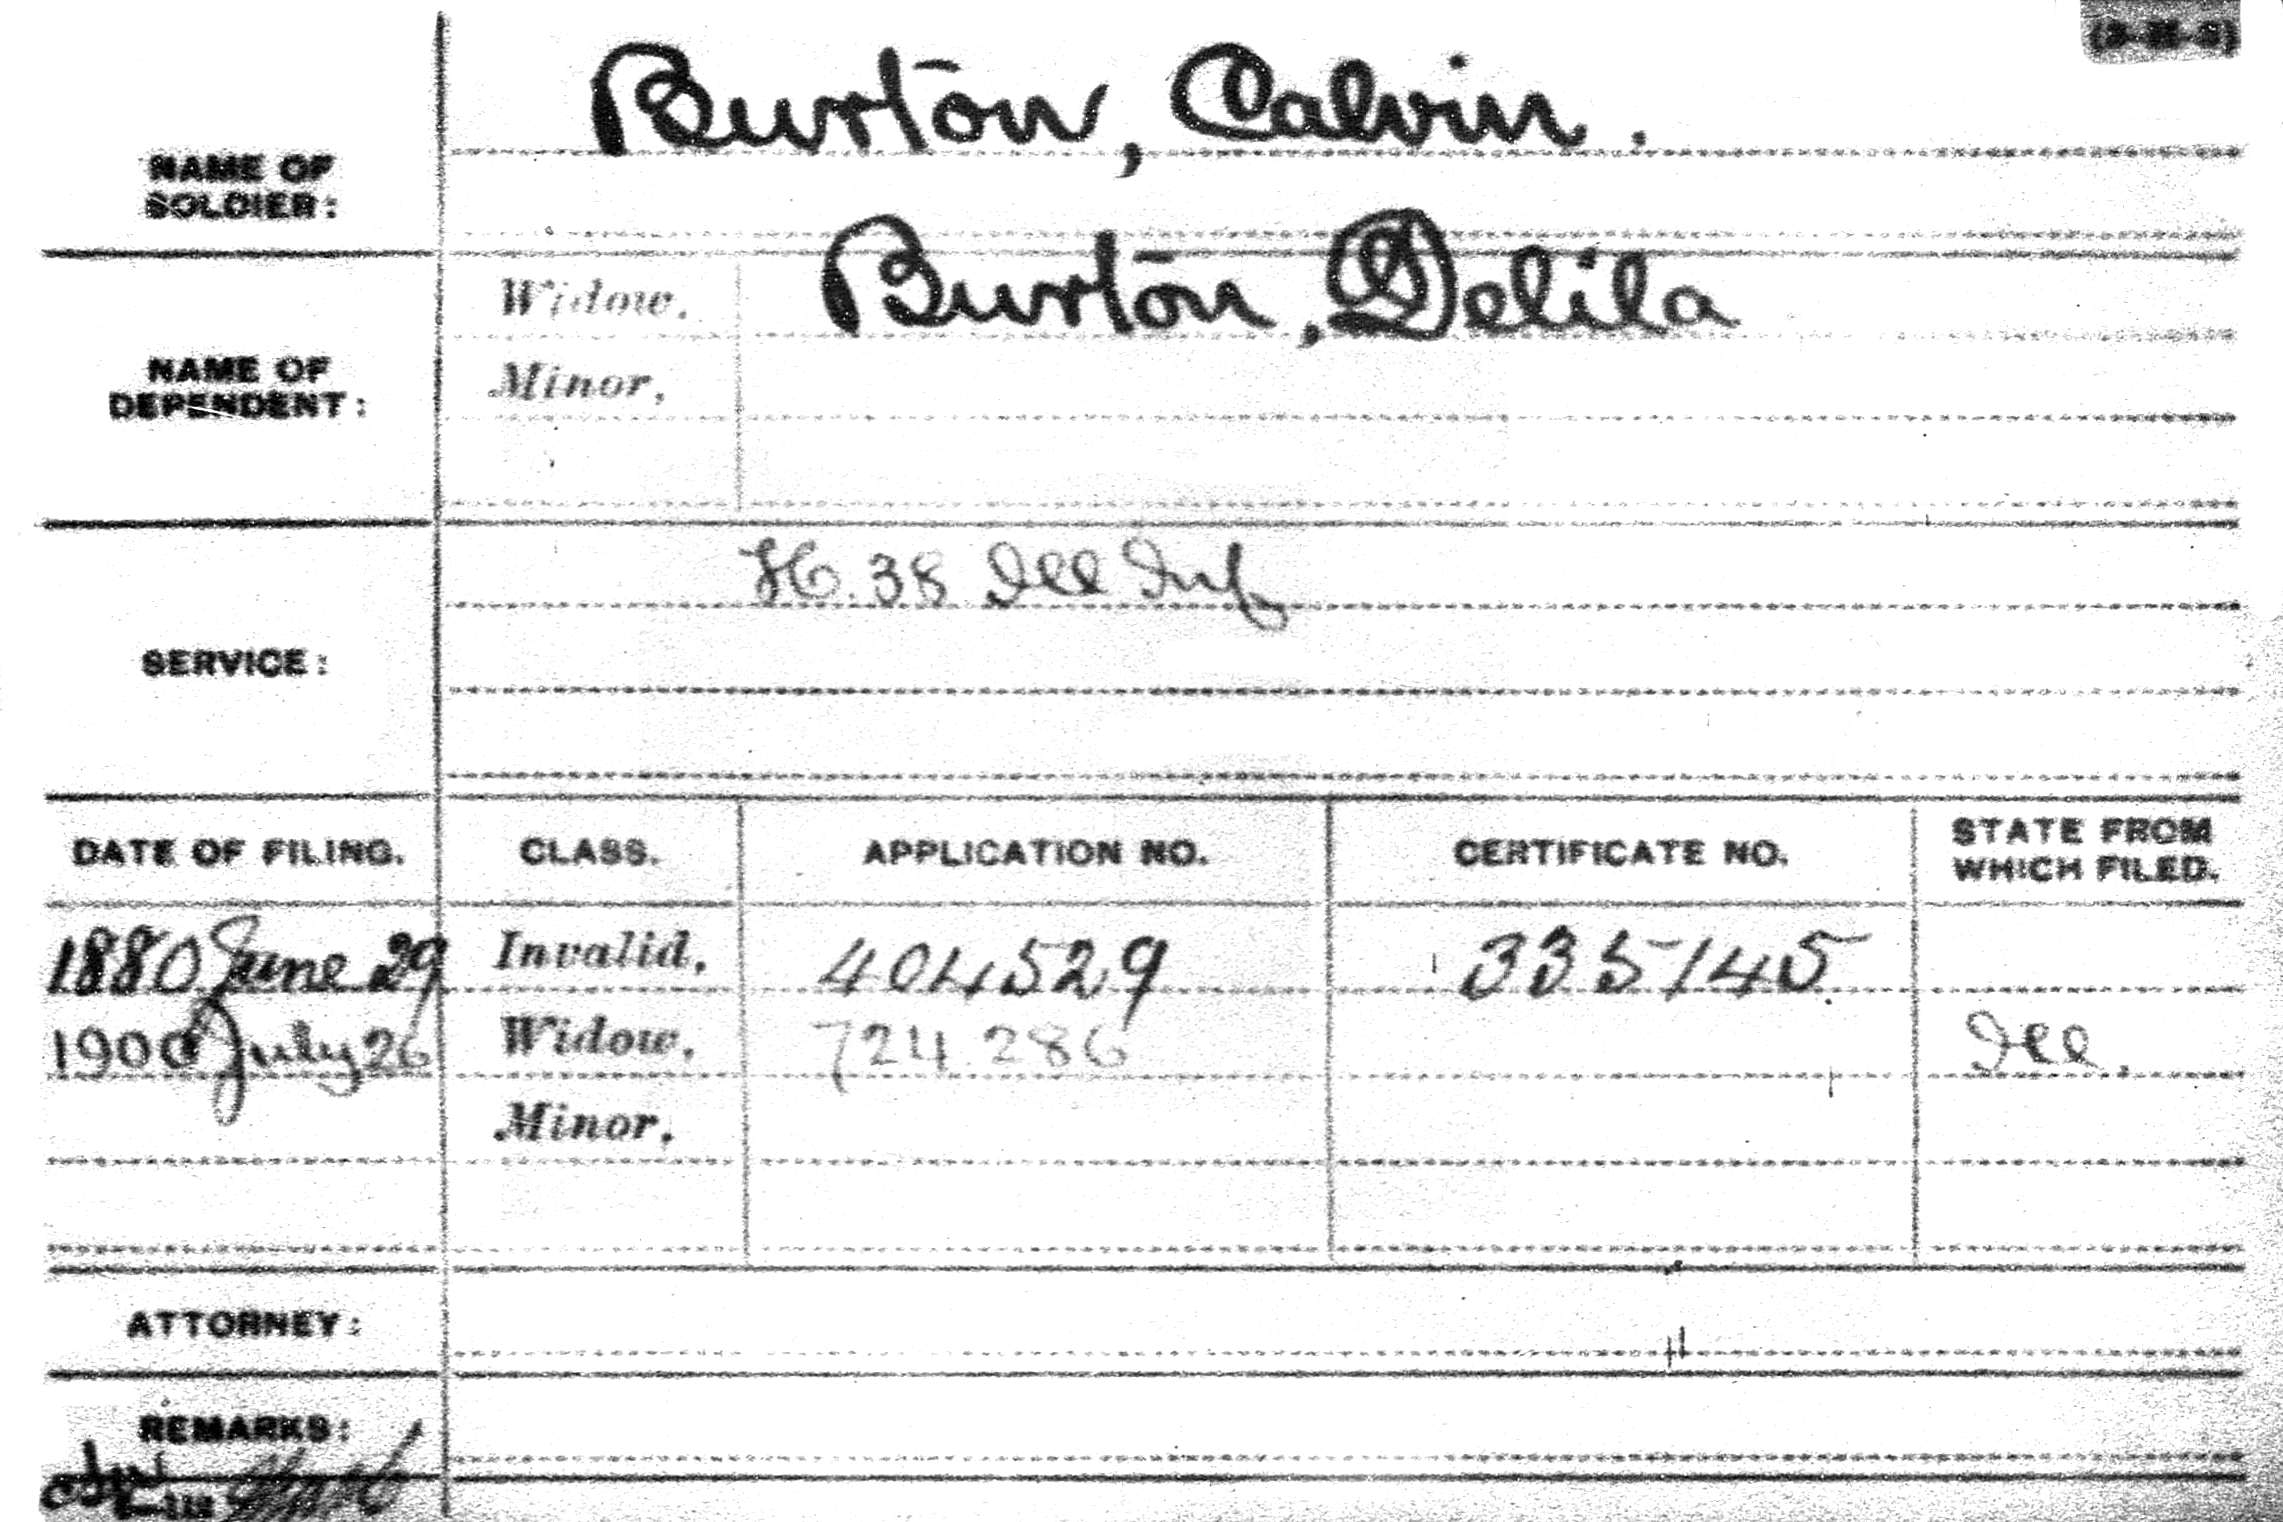 Burton, Calvin.
NAME OF
SOLDIER:
Widow, Burton, Delila
NAME OF
DEPENDENT:
Minor,
H. 38 Ill Inf
SERVICE:
DATE OF FILING. CLASS. APPLICATION NO. CERTIFICATE NO. STATE FROM
WHICH FILED.
1880 June 29 Invalid, 404529 335145
1900 July 26 Widow, 724.286 Ill.
Minor,
ATTORNEY:
REMARKS: